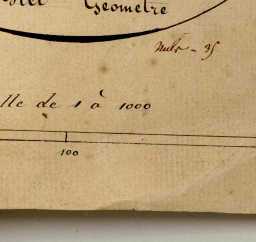 Géometre
lle de 1 à 1000
100